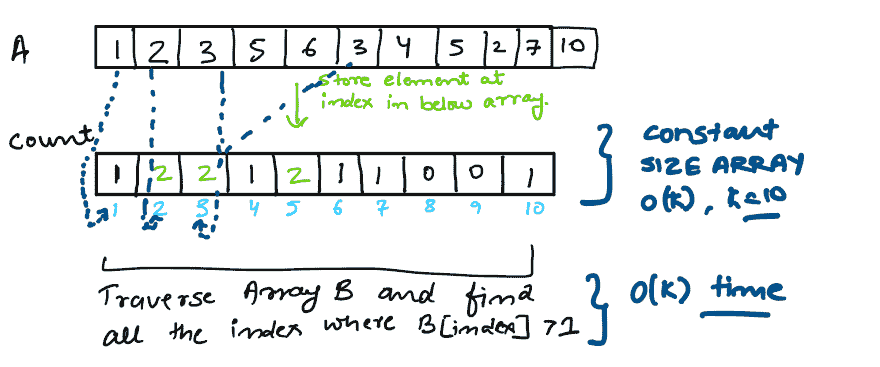 A 1 2 3 5 6 3 4 5 2 7 10
Store element at
index in below array.
Count
1 2 2 1 2 1 1 0 0 1
1 2 3 4 5 6 7 8 9 10
constant
SIZE ARRAY
O(k), k=10
Traverse Array B and find
all the index where B[index] >1
O(k) time